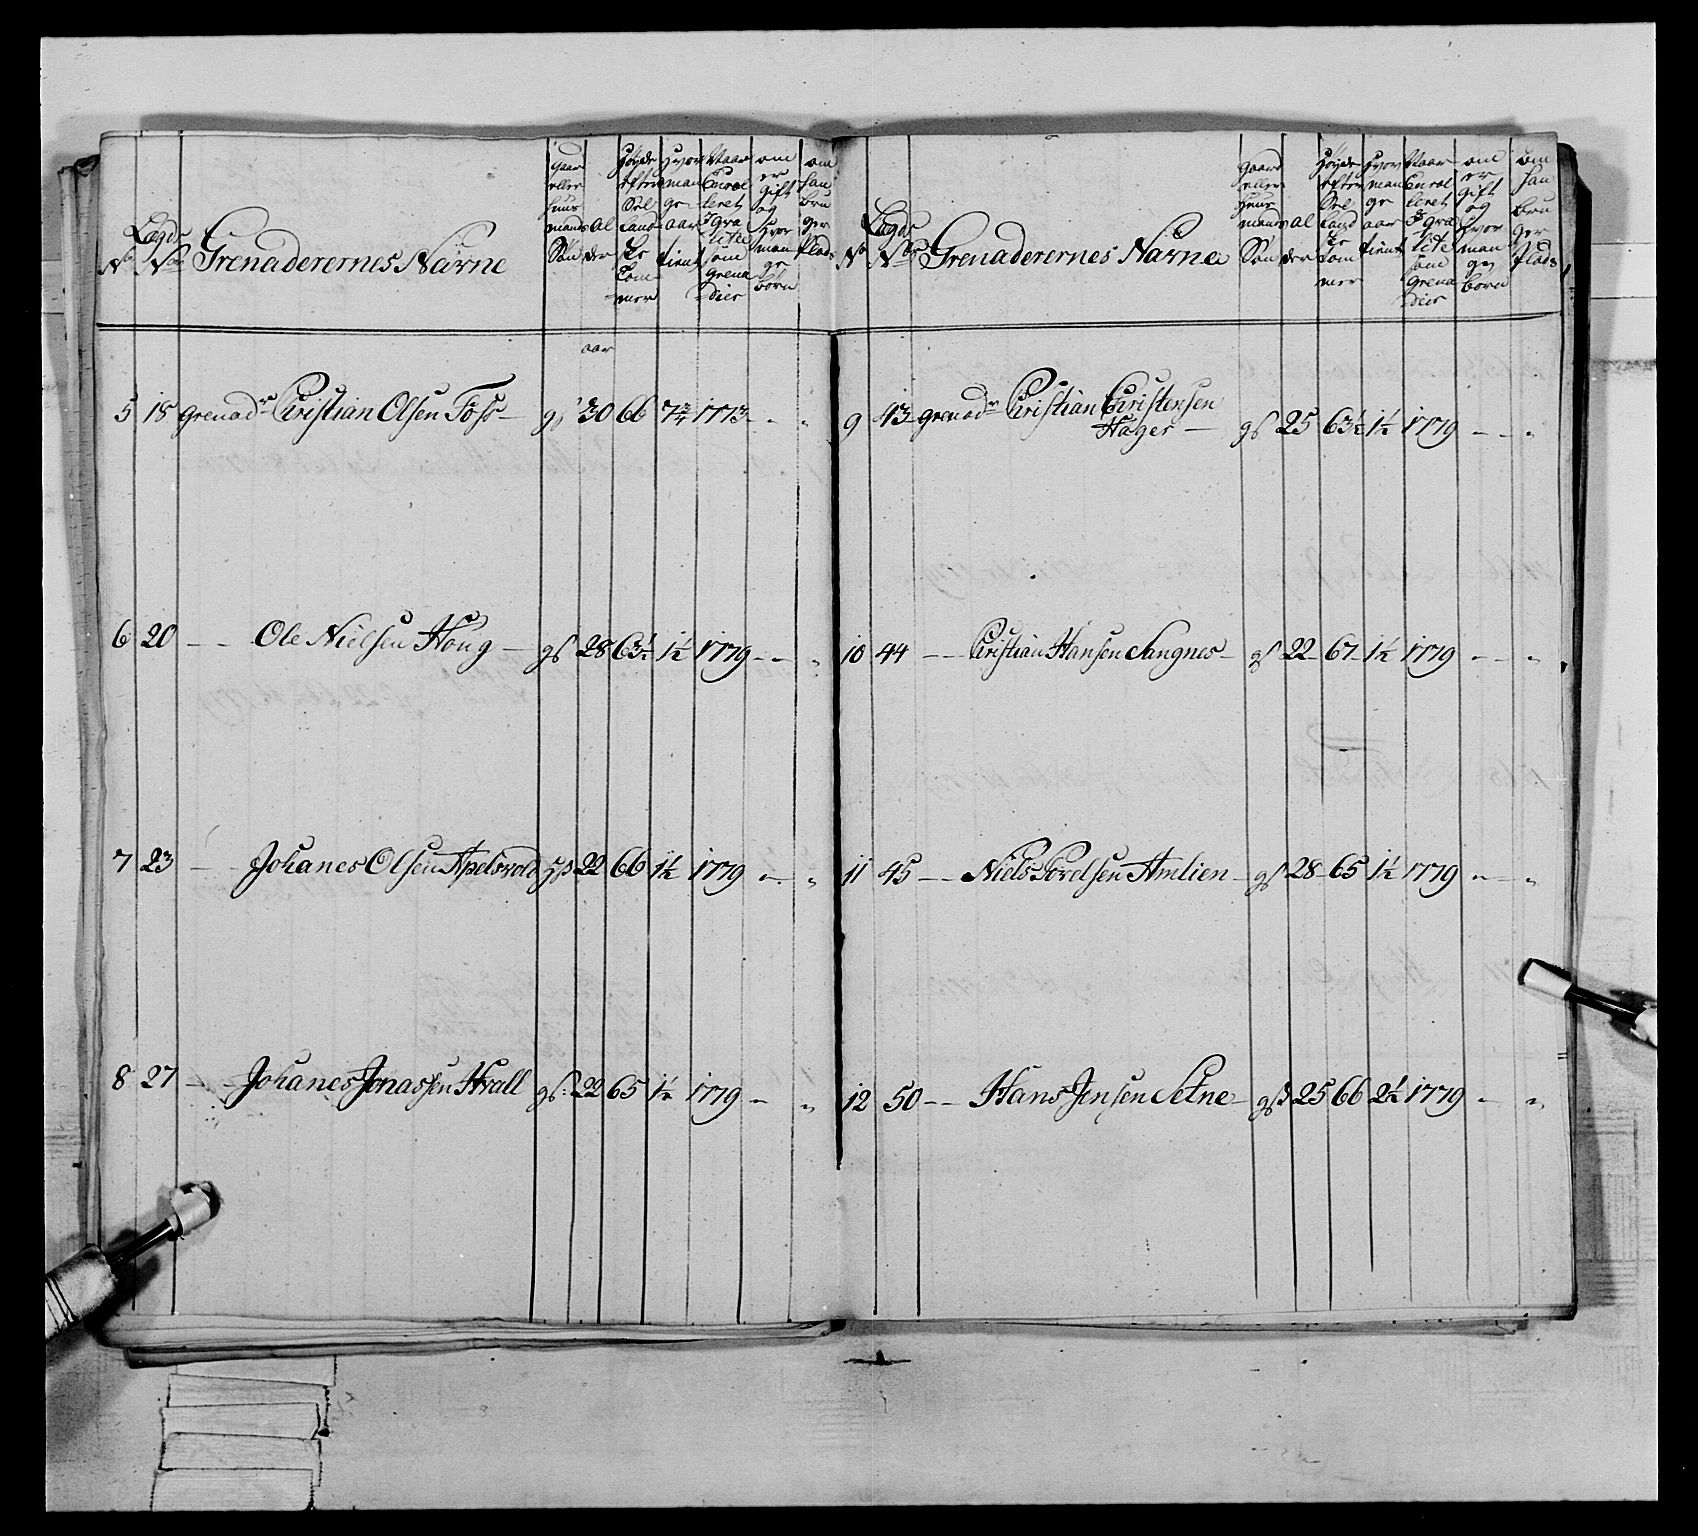 No
Lægds Nos
Grenaderernes Navne
gaard eller huus mands Søn
Alder
Høyde efter Sellandske Tommer
Hvor mange aar tient
Naar Enrolleret I qualitete som Grenadier
om er gift og hvor mange børn
om han bruger Plads
aar
5 18 Grenadr Christian Olsen Foss gs 30 66 7¾ 1773 - - "
6 20 - - Ole Nielsen Houg gs 28 63½ 1½ 1779 - - "
7 23 - Johanes Olsen Apelsvold gs 22 66 1½ 1779 - - "
8 27 - - Johanes Jonassen Hvall gs 22 65 1½ 1779 - "
No
Lægds Nos
Grenaderernes Navne
gaard eller Huus mands Søn
Alder
Høyde efter Sellandske Tommer
Hvor mange aar tient
Naar Enrolleret I qualitete som Grenadier
om er gift og hvor mange børn
om han bruger Plads
9 43 Grenadr Christian Christensen
Hager gs 25 63½ 1½ 1779 - - "
10 44 - - Christian Hansen Sangnes gs 22 67 1½ 1779 - - "
11 45 - - Niels Povelsen Amlien gs 28 65 1½ 1779 - - "
12 50 - - Hans Jensen Setne gs 25 66 2½ 1779 - "